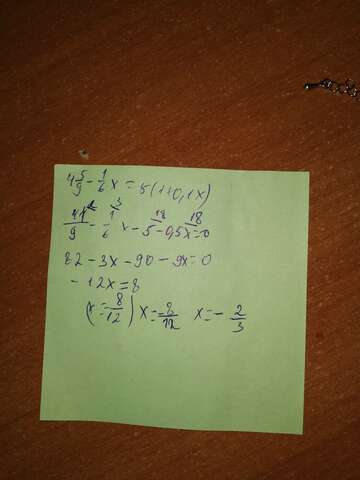 4 5/9 - 1/6 x = 5(1+0,1x)
41²/9 - 1³/6 x - 5¹⁸ - 0,5x¹⁸ = 0
82 - 3x - 90 - 9x = 0
- 12x = 8
(x = 8/12) x = -8/12 x = - 2/3